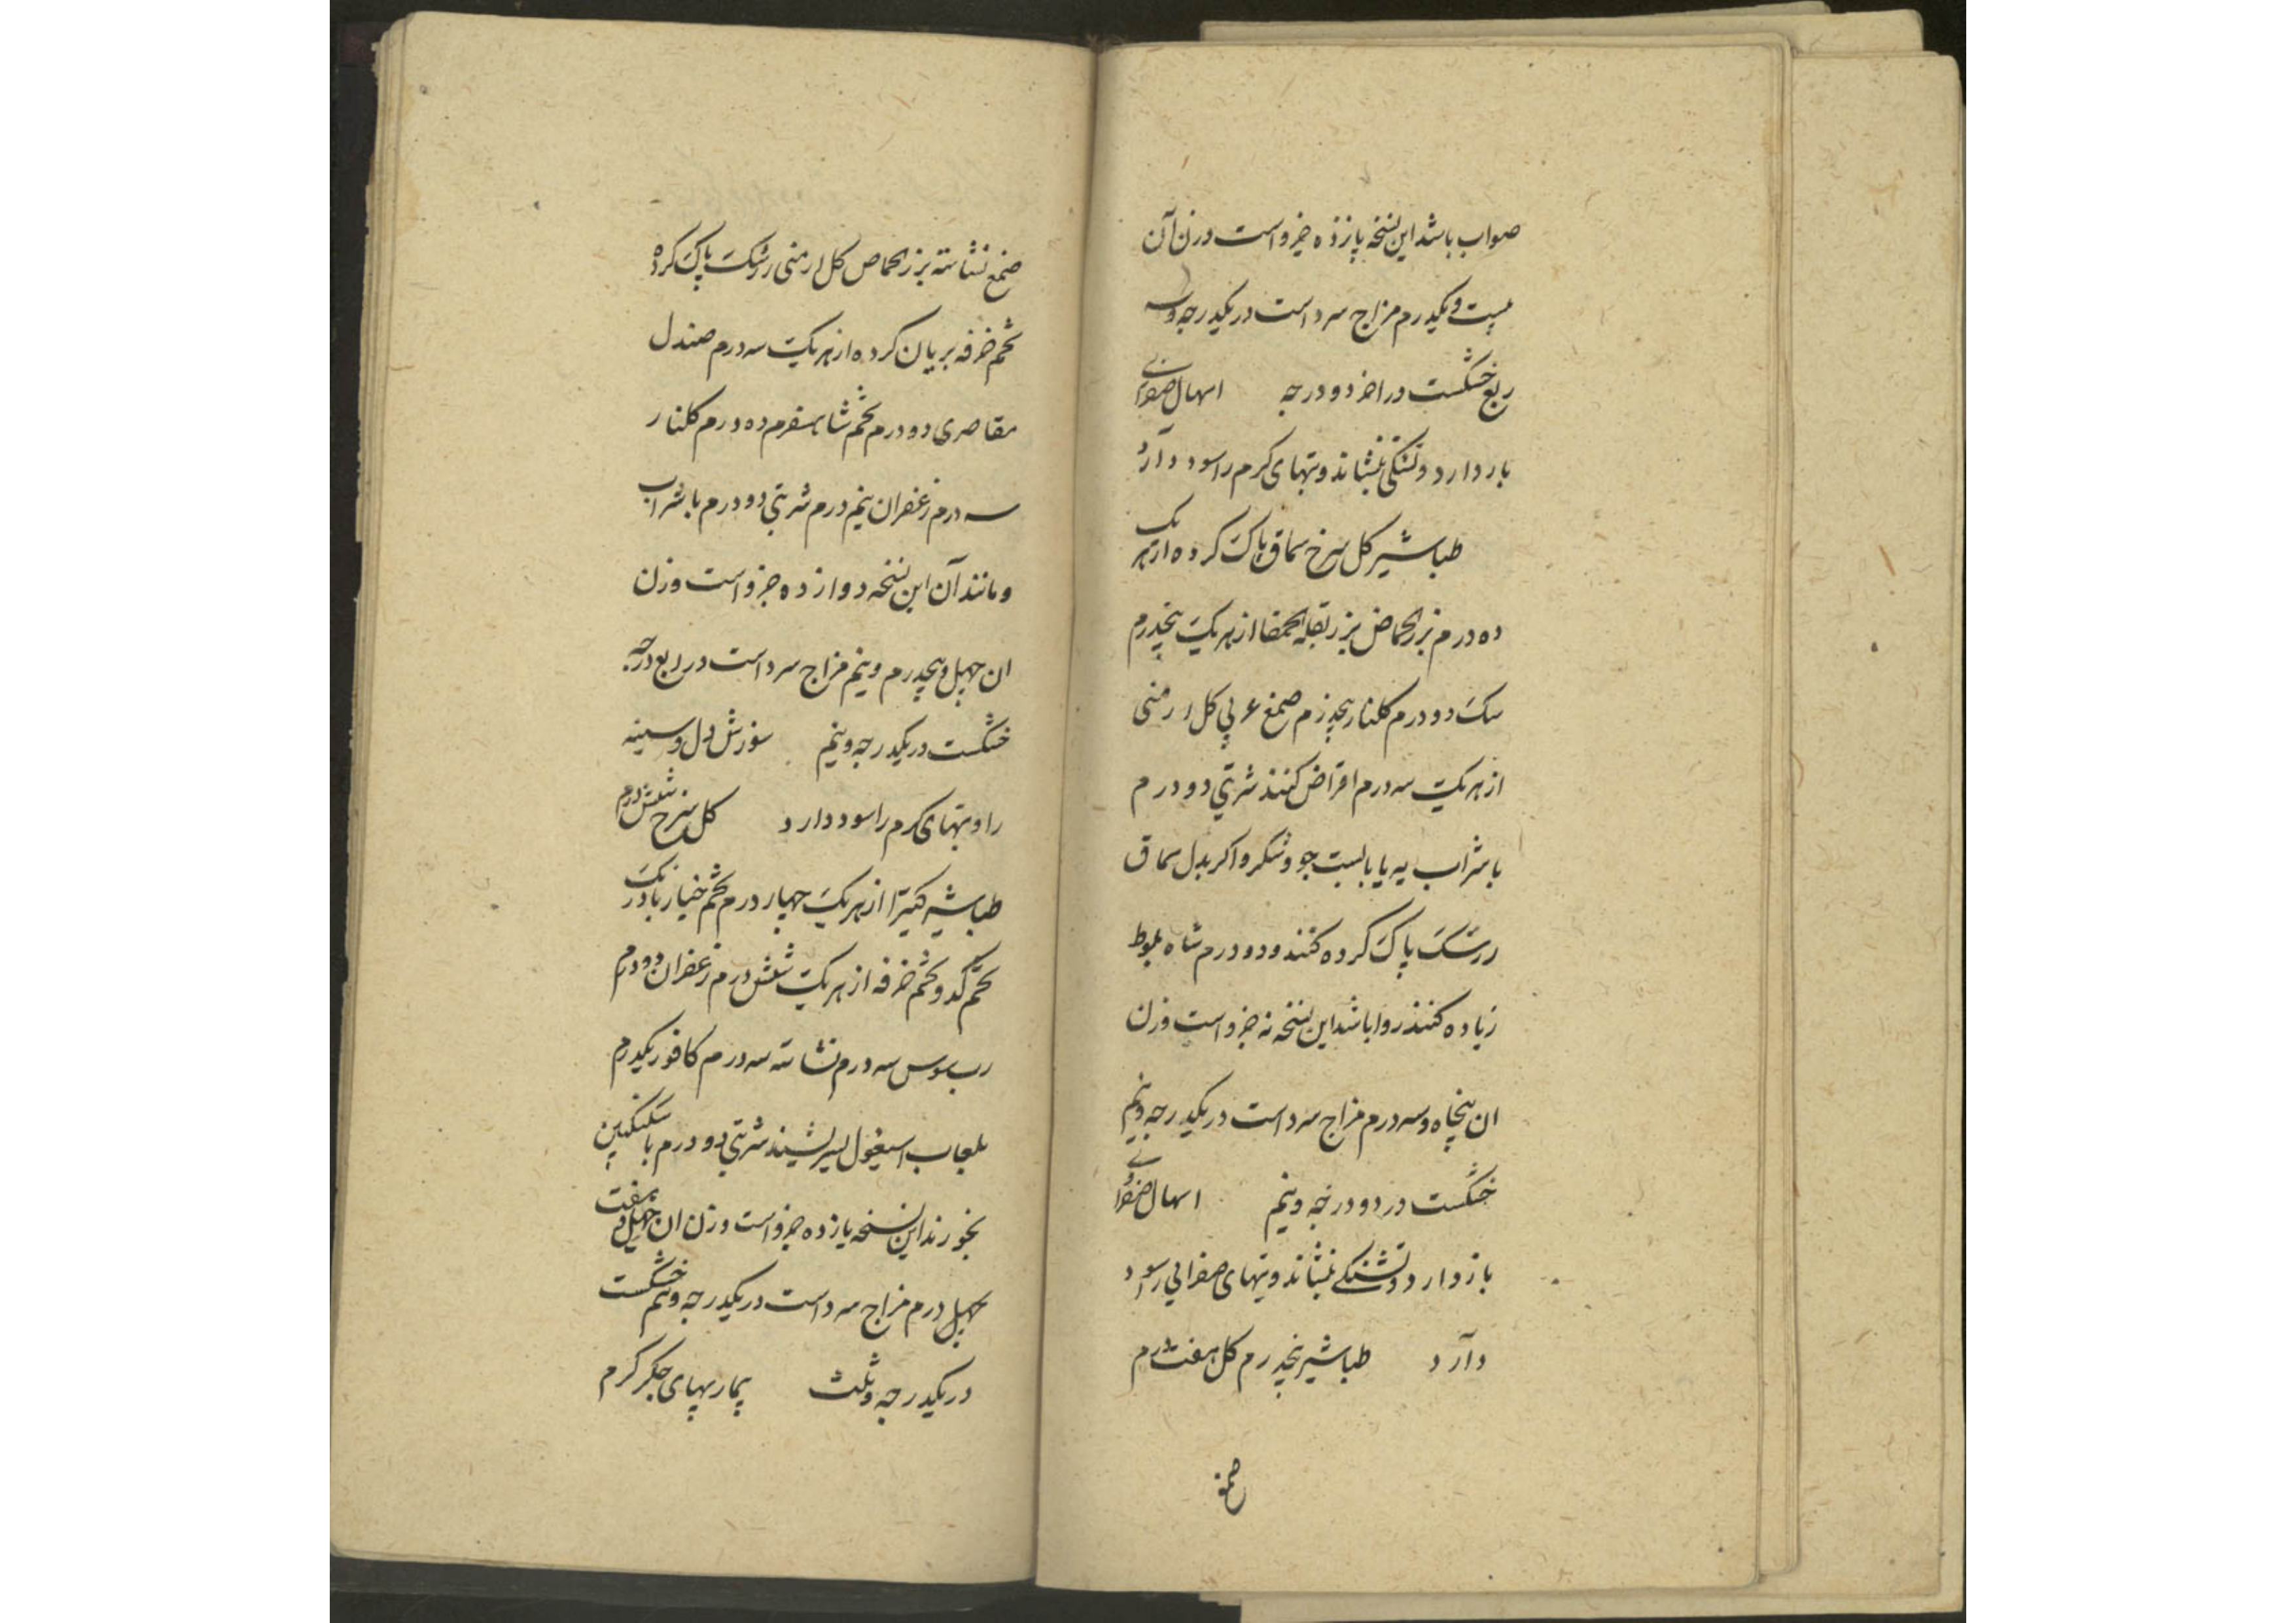 صواب باشد این نسخه پازده جزواست وزن آن
بیست ویکدرم مزاج سرد است در یکدرجه وسه
ربع خشکست در اخر دو درجه اسهال صفرائی
باز دارد و تشنکی بنشاند و تبهای کرم را سود دارد
طباشیر کل سرخ سماق پاک کرده از هریک
ده درم بزر الحماض بزر بقلة الحمقا از هریک پنجدرم
سک دو درم کلنار پنجدرم صمغ عربی کل ارمنی
از هریک سه درم اقراض کنند شربتی دو درم
با شراب به یا با بست جو و شکر و اکر بدل سماق
زرشک پاک کرده کنند و دو درم شاه بلوط
زیاده کنند روا باشد این نسخه نه جزو است وزن
ان پنجاه وسه درم مزاج سرد است در یکدرجه ونیم
خشکست در دو درجه ونیم اسهال صفرائی
باز دارد و تشنکی بنشاند و تبهای صفرایی را سود
دارد طباشیر پنجدرم کل هفت درم
صمغ
صمغ نشاسته بزر الحماص کل ارمنی زرشک پاک کرده
تخم خرفه بریان کرده از هریک سه درم صندل
مقاصری دو درم تخم شاهسفرم ده درم کلنار
سه درم زعفران نیم درم شربتی دو درم با شراب
و مانند آن این نسخه دوازده جزو است وزن
ان چهل و پنجدرم و نیم مزاج سرد است در ربع درجه
خشکست در یکدرجه ونیم سوزش دل و سینه
را و تبهای کرم را سود دارد کل سرخ شش درم
طباشیر کتیرا از هریک چهار درم تخم خیار بادرنک
تخم کدو تخم خرفه از هریک شش درم زعفران دو درم
رب سوس سه درم نشاسته سه درم کافور یکدرم
بلعاب اسبغول بسرشیند شربتی دو درم با سکنکبین
بخورند این نسخه یازده جزو است وزن ان چهل و هفت
درم مزاج سرد است در یکدرجه ونیم خشکست
در یکدرجه وثلث بیماریهای جکر کرم